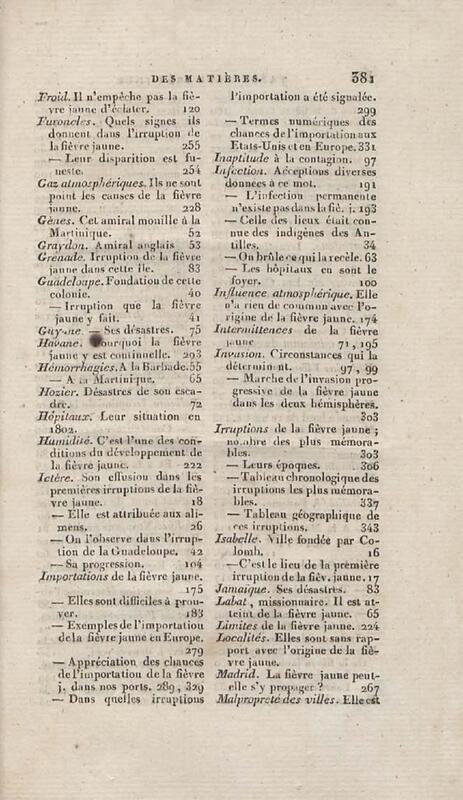 DES MATIÈRES. 381
Froid. Il n'empêche pas la fiè-
vre jaune d'éclater. 120
Furoncles. Quels signes ils
donnent dans l'irruption de
la fièvre jaune. 255
— Leur disparition est fu-
neste. 254
Gaz atmosphériques. Ils ne sont
point les causes de la fièvre
jaune. 228
Gènes. Cet amiral mouille à la
Martinique. 52
Graydon. Amiral anglais 53
Grenade. Irruption de la fièvre
jaune dans cette île. 83
Guadeloupe. Fondation de cette
colonie. 40
— Irruption que la fièvre
jaune y fait. 41
Guyane. — Ses désastres. 75
Havane. Pourquoi la fièvre
jaune y est continuelle. 293
Hémorrhagies. A la Barbade. 55
— A la Martinique. 65
Hozier. Désastres de son esca-
dre. 72
Hôpitaux. Leur situation en
1802.
Humidité. C'est l'une des con-
ditions du développement de
la fièvre jaune. 222
Ictère. Son effusion dans les
premières irruptions de la fiè-
vre jaune. 18
— Elle est attribuée aux ali-
mens. 26
— On l'observe dans l'irrup-
tion de la Guadeloupe. 42
— Sa progression. 104
Importations de la fièvre jaune.
175
— Elles sont difficiles à prou-
ver. 183
— Exemples de l'importation
de la fièvre jaune en Europe.
279
— Appréciation des chances
de l'importation de la fièvre
j. dans nos ports. 289, 329
— Dans quelles irruptions
l'importation a été signalée.
299
— Termes numériques des
chances de l'importation aux
Etats-Unis et en Europe. 331
Inaptitude à la contagion. 97
Infection. Acceptions diverses
données à ce mot. 191
— L'infection permanente
n'existe pas dans la fiè. j. 193
— Celle des lieux était con-
nue des indigènes des An-
tilles. 34
— On brûle ce qui la recèle. 63
— Les hôpitaux en sont le
foyer. 100
Influence atmosphérique. Elle
n'a rien de commun avec l'o-
rigine de la fièvre jaune. 174
Intermittences de la fièvre
jaune 71, 195
Invasion. Circonstances qui la
déterminent. 97, 99
— Marche de l'invasion pro-
gressive de la fièvre jaune
dans les deux hémisphères.
303
Irruptions de la fièvre jaune ;
nombre des plus mémora-
bles. 303
— Leurs époques. 306
— Tableau chronologique des
irruptions les plus mémora-
bles. 337
— Tableau géographique de
ces irruptions. 343
Isabelle. Ville fondée par Co-
lomb. 16
— C'est le lieu de la première
irruption de la fièv. jaune. 17
Jamaïque. Ses désastres. 83
Labat, missionnaire. Il est at-
teint de la fièvre jaune. 65
Limites de la fièvre jaune. 224
Localités. Elles sont sans rap-
port avec l'origine de la fiè-
vre jaune.
Madrid. La fièvre jaune peut-
elle s'y propager ? 267
Malpropreté des villes. Elle est